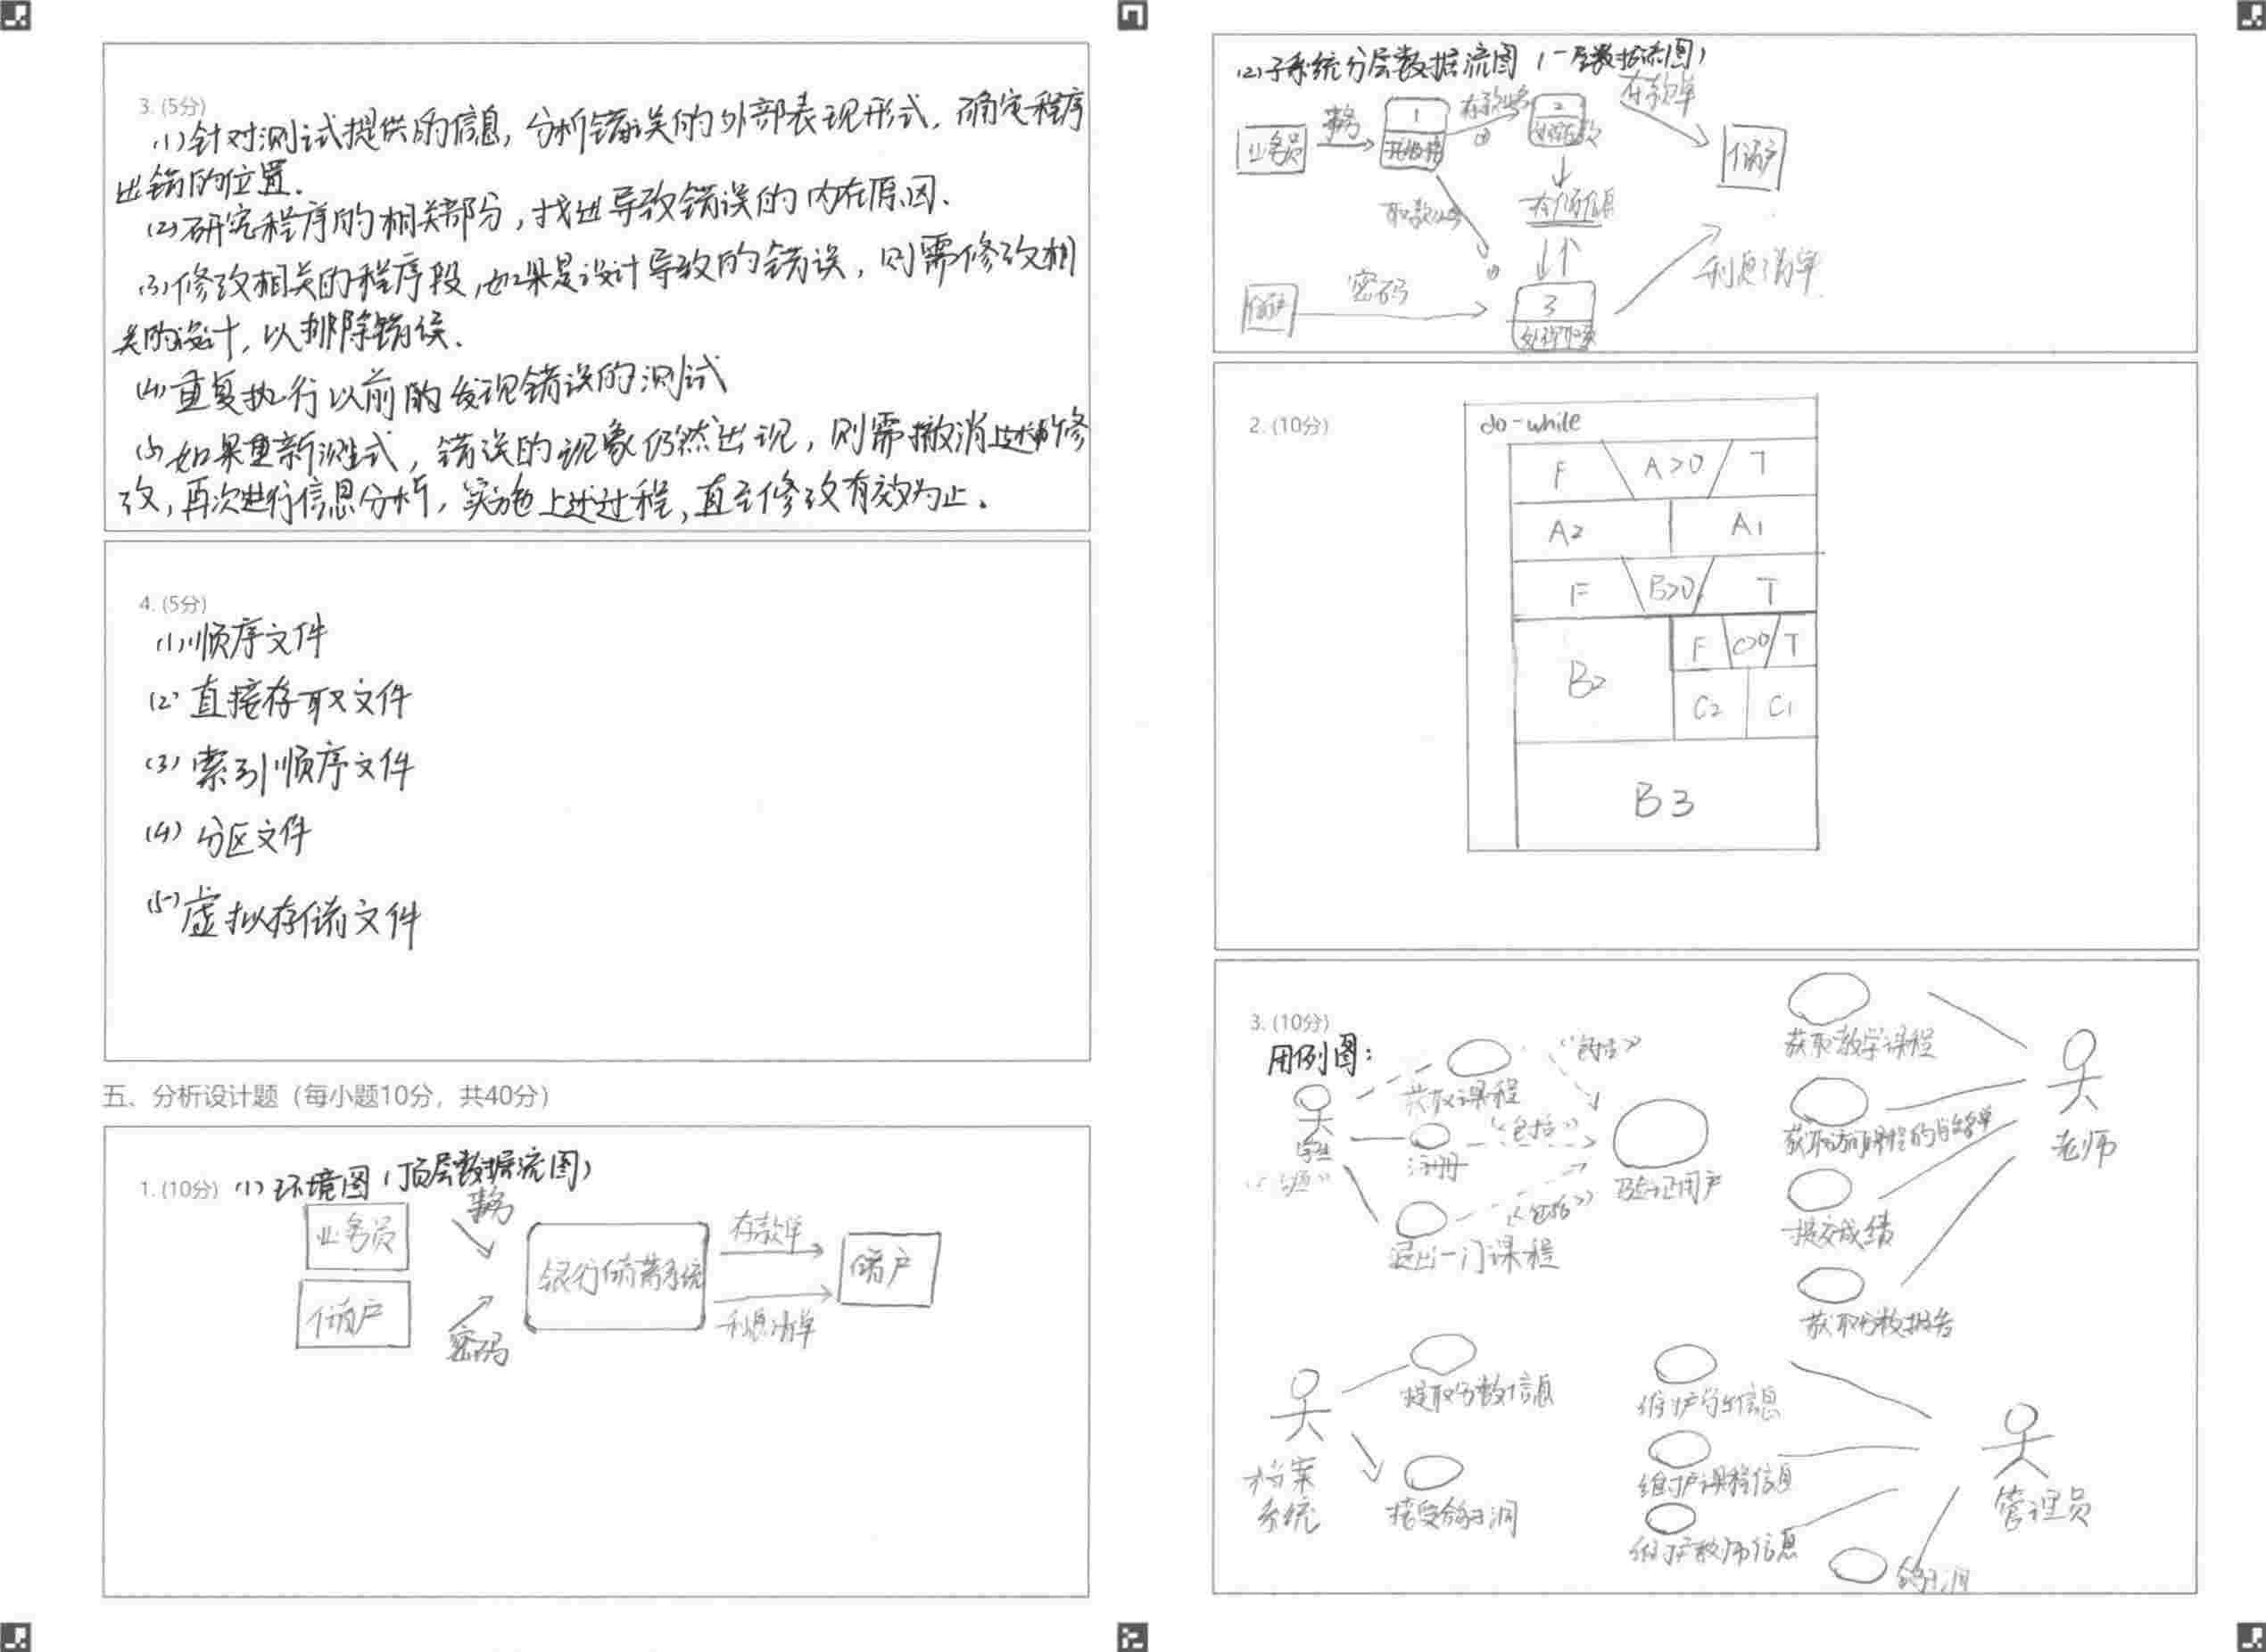 3. (5分)
(1)针对测试提供的信息, 分析错误的外部表现形式, 确定程序
出错的位置.
(2)研究程序的相关部分, 找出导致错误的内在原因.
(3)修改相关的程序段, 如果是设计导致的错误, 则需修改相
关的设计, 以排除错误.
(4)重复执行以前的发现错误的测试
(5)如果重新测试, 错误的现象仍然出现, 则需撤消上述的修
改, 再次进行信息分析, 实施上述过程, 直至修改有效为止.
4. (5分)
(1)顺序文件
(2)直接存取文件
(3)索引顺序文件
(4)分区文件
(5)虚拟存储文件
五、分析设计题（每小题10分，共40分）
1. (10分) (1)环境图(顶层数据流图)
业务员
事务
储户
密码
银行储蓄系统
存款单
利息清单
储户
(2)子系统分层数据流图 (一层数据流图)
业务员
事务
1
2
存款单
储户
取款业务
密码
储户
3
利息清单
2. (10分)
do-while
F A>0 T
A2 A1
F B>0 T
F C>0 T
B2
C2 C1
B3
3. (10分)
用例图:
学生
获取课程
《包括》
注册
《包括》
退出一门课程
《包括》
验证用户
获取教学课程
提交成绩
获取分数报告
老师
档案
系统
提取分数信息
维护学生信息
维护课程信息
维护教师信息
管理员